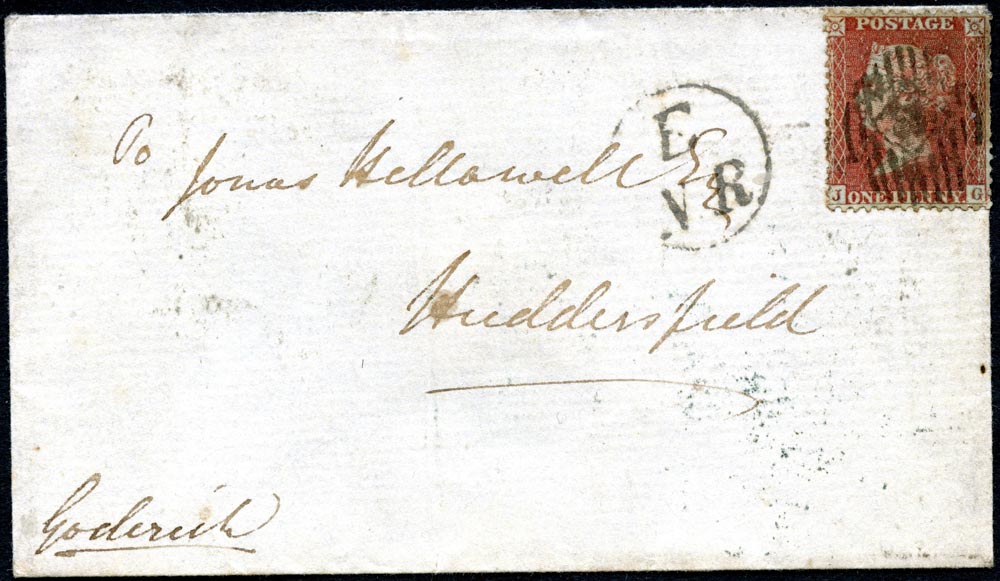 POSTAGE
E
V R
J ONE PENNY G
To
Jonas Hellawell Esq
Huddersfield
Goderich